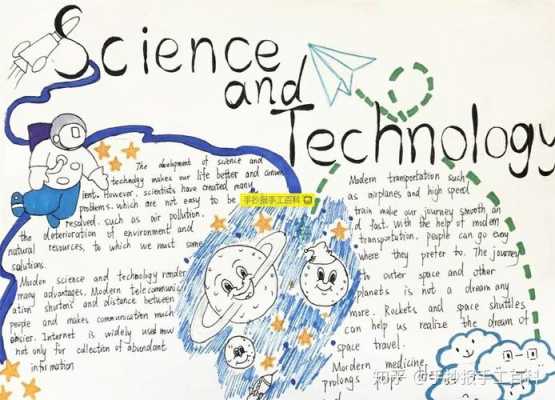 Science
and
Technology
The development of science and
technology makes our life better and conven
ient. However, scientists have created many
problems, which are not easy to be
resolved. such as air pollution.
the deterioration of environment and
natural resources, to which we must some
solutions.
Morden science and technology render
many advantages. Modern telecommunic
ation shortens and distance between
people and makes communication much
easier. Internet is widely used now
not only for collection of abundant
information
手抄报手工百科
Modern transportation such
as airplanes and high speed
train make our journey smooth an
d fast. With the help of modern
transportation, people can go easy
where they prefer to. The journey
to outer space and other
planets is not a dream any
more. Rockets and space shuttles
can help us realize the dream of
space travel.
Mordern medicine
prolongs helps
知乎 @手抄报手工百科